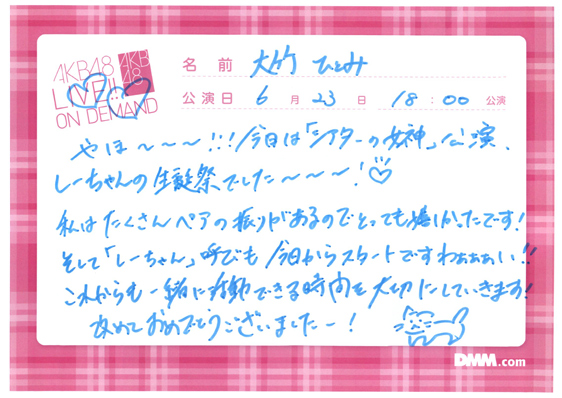 AKB48
LIVE!!
ON DEMAND
AKB
48
名前 大竹 ひとみ
公演日 6月23日 18:00公演
やほ〜〜〜!!!今日は「シアターの女神」公演、
しーちゃんの生誕祭でした〜〜〜!
私はたくさんペアの振りがあるのでとっても嬉しかったです!
そして「しーちゃん」呼びも今日からスタートですわぁぁぁい!!
これからも一緒に活動できる時間を大切にしていきます!
改めておめでとうございましたー!
DMM.com